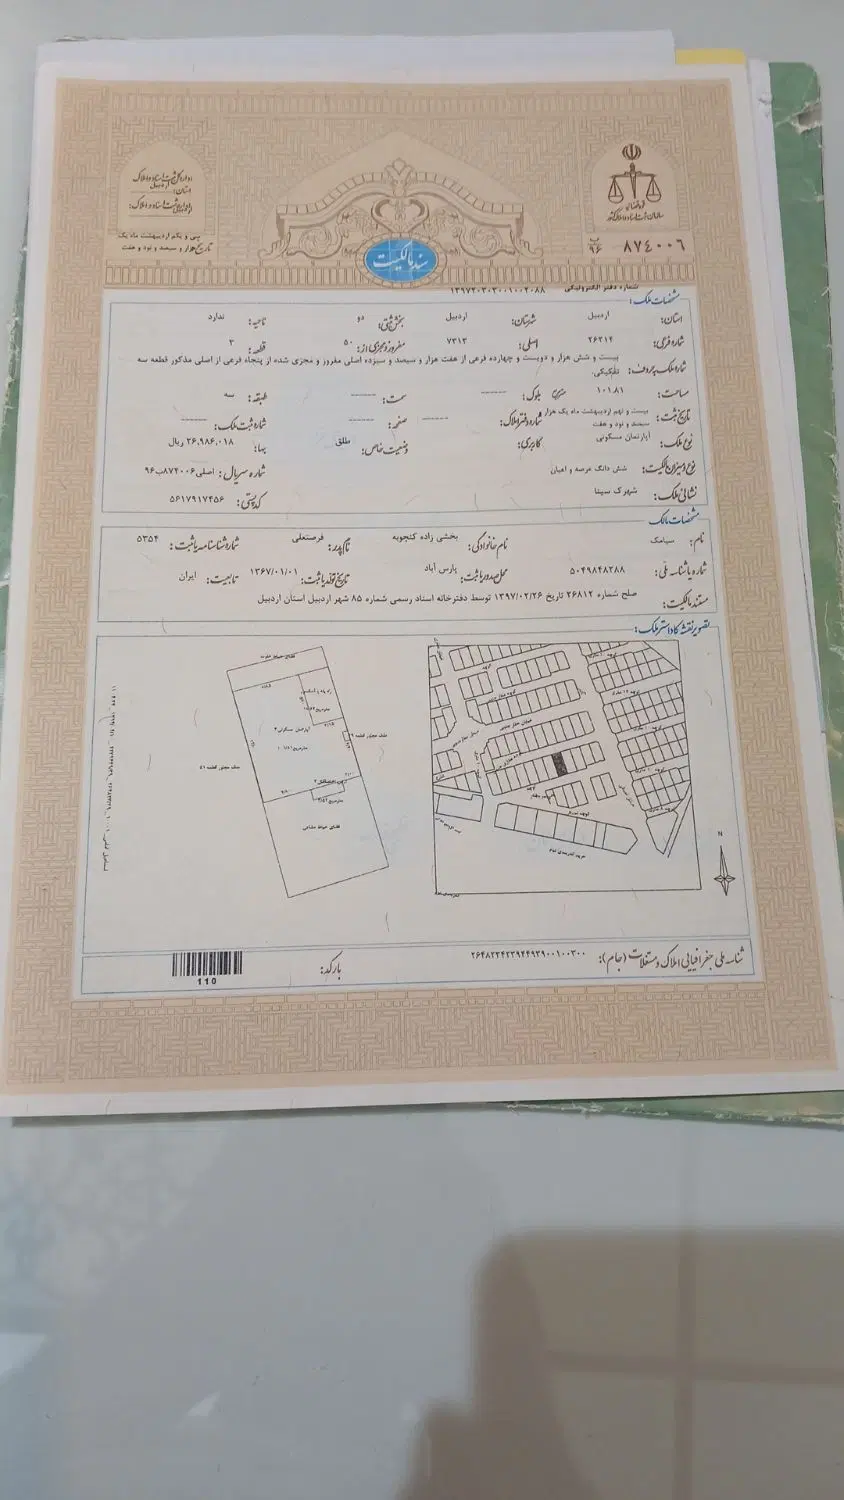 قوه قضائیه
سازمان ثبت اسناد و املاک کشور
اداره کل ثبت اسناد و املاک
استان: اردبیل
اداره ثبت اسناد و املاک: اردبیل
سی و یکم اردیبهشت ماه یک
تاریخ: هزار و سیصد و نود و هفت
۸۷۴۰۰۶ ب ۹۶
سند مالکیت
شماره دفتر الکترونیکی ۱۳۹۷۲۰۳۰۳۰۰۱۰۰۲۰۸۸
مشخصات ملک:
استان: اردبیل شهرستان: اردبیل بخش ثبتی: دو ناحیه: ندارد
شماره فرعی: ۲۶۲۱۴ اصلی: ۷۳۱۳ مفروز و مجزی از: ۵۰ قطعه: ۳
شماره ملک به حروف: بیست و شش هزار و دویست و چهارده فرعی از هفت هزار و سیصد و سیزده اصلی مفروز و مجزی شده از پنجاه فرعی از اصلی مذکور قطعه سه
تفکیکی.
مساحت: ۱۰۱.۸۱ مترمربع بلوک: ------ سمت: ------ طبقه: سه
تاریخ ثبت: بیست و نهم اردیبهشت ماه یک هزار و سیصد و نود و هفت شماره دفتر املاک: ------ صفحه: ------ شماره ثبت ملک: ------
نوع ملک: آپارتمان مسکونی کاربری: وضعیت خاص: طلق بهاء: ۲۶,۹۸۶,۰۱۸ ریال
نوع و میزان مالکیت: شش دانگ عرصه و اعیان شماره سریال: اصلی۸۷۴۰۰۶ب۹۶
نشانی ملک: شهرک سینا کد پستی: ۵۶۱۷۹۱۷۴۵۶
مشخصات مالک
نام: سیامک نام خانوادگی: بخشی زاده کنجوبه نام پدر: فرصتعلی شماره شناسنامه یا ثبت: ۵۳۵۴
شماره یا شناسه ملی: ۵۰۴۹۸۴۸۲۸۸ محل صدور یا ثبت: پارس آباد تاریخ تولد یا ثبت: ۱۳۶۷/۰۱/۰۱ تابعیت: ایران
مستند مالکیت: صلح شماره ۲۶۸۱۲ تاریخ ۱۳۹۷/۰۲/۲۶ توسط دفترخانه اسناد رسمی شماره ۸۵ شهر اردبیل استان اردبیل
تصویر نقشه کاداستر ملک:
آپارتمان مسکونی ۳
فضای حیاط مشاعی
N
شناسه ملی جغرافیایی املاک و مستغلات (جام): ۲۶۴۸۲۳۴۲۳۹۴۴۹۳۹۰۰۱۰۰۳۰۰
بارکد:
110